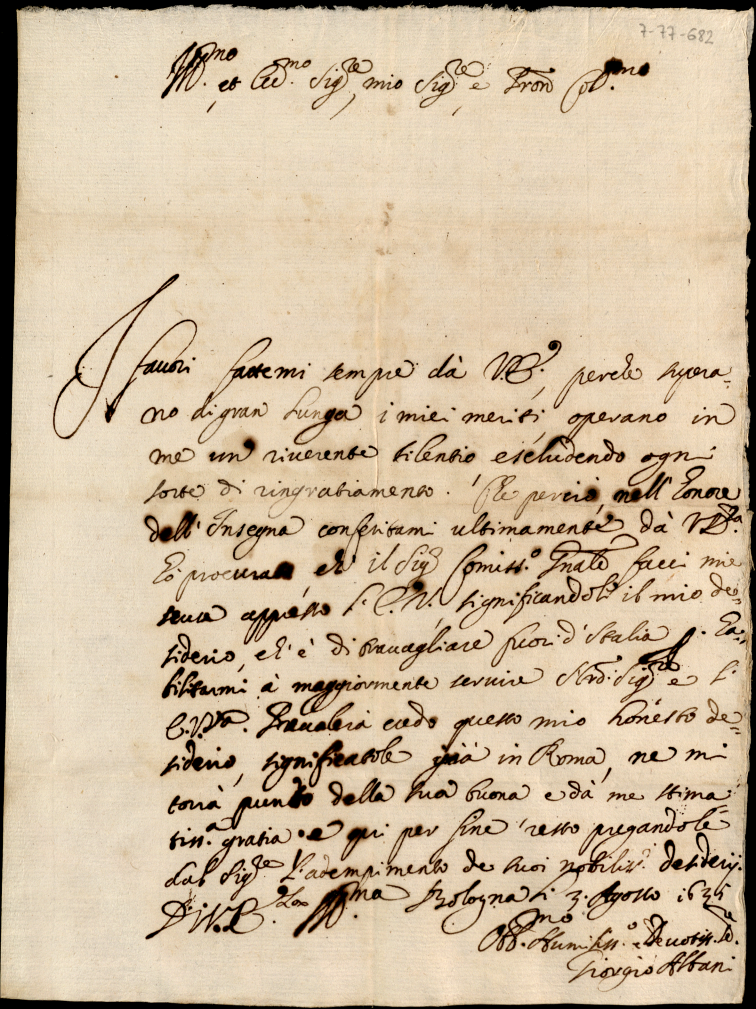 7-77-682
Ill.mo et Ecc.mo Sig.re mio Sig.re e Pron Col.mo
I favori fattemi sempre dà V.E., perche supera-
no di gran lunga i miei meriti, operano in
me un riverente silentio escludendo ogni
sorte di ringratiamento. Che perciò nell'honore
dell'Insegna conferitami ultimamente, dà V.E.za
hò procurato, ch'il Sig.r Comiss.o Gnale facci mie
scuse appresso l'E.V., significandoli il mio de-
siderio, ch'è di travagliare fuori d'Italia p. ha-
bilitarmi à maggiormente servire Sig.re e l'
E.V.ra. Prevalerà credo questo mio honesto de-
siderio, significatole già in Roma, ne mi
torrà punto della sua buona e dà me stima-
tiss.a gratia. e qui per fine resto pregandole
dal Sig.re l'adempimento de suoi nobiliss. desiderij.
Di V.E. Ill.ma Bologna li 3. Agosto 1635
Obb.mo Humiliss.o e Devotiss. Se.re
Giorgio Albani